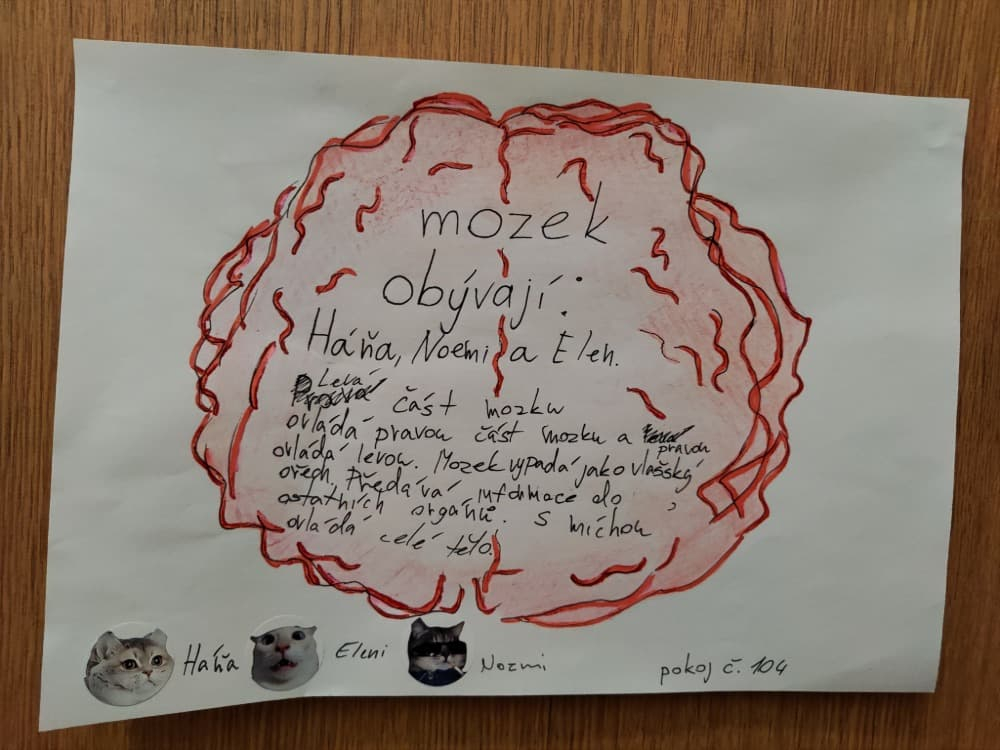 mozek
obývají:
Háňa, Noemi a Elen.
Levá část mozku
ovládá pravou část mozku a pravou
ovládá levou. Mozek vypadá jako vlašský
ořech. Předává informace do
ostatních orgánů. S míchou
ovládá celé tělo!
Háňa Eleni Nozmi pokoj č. 104